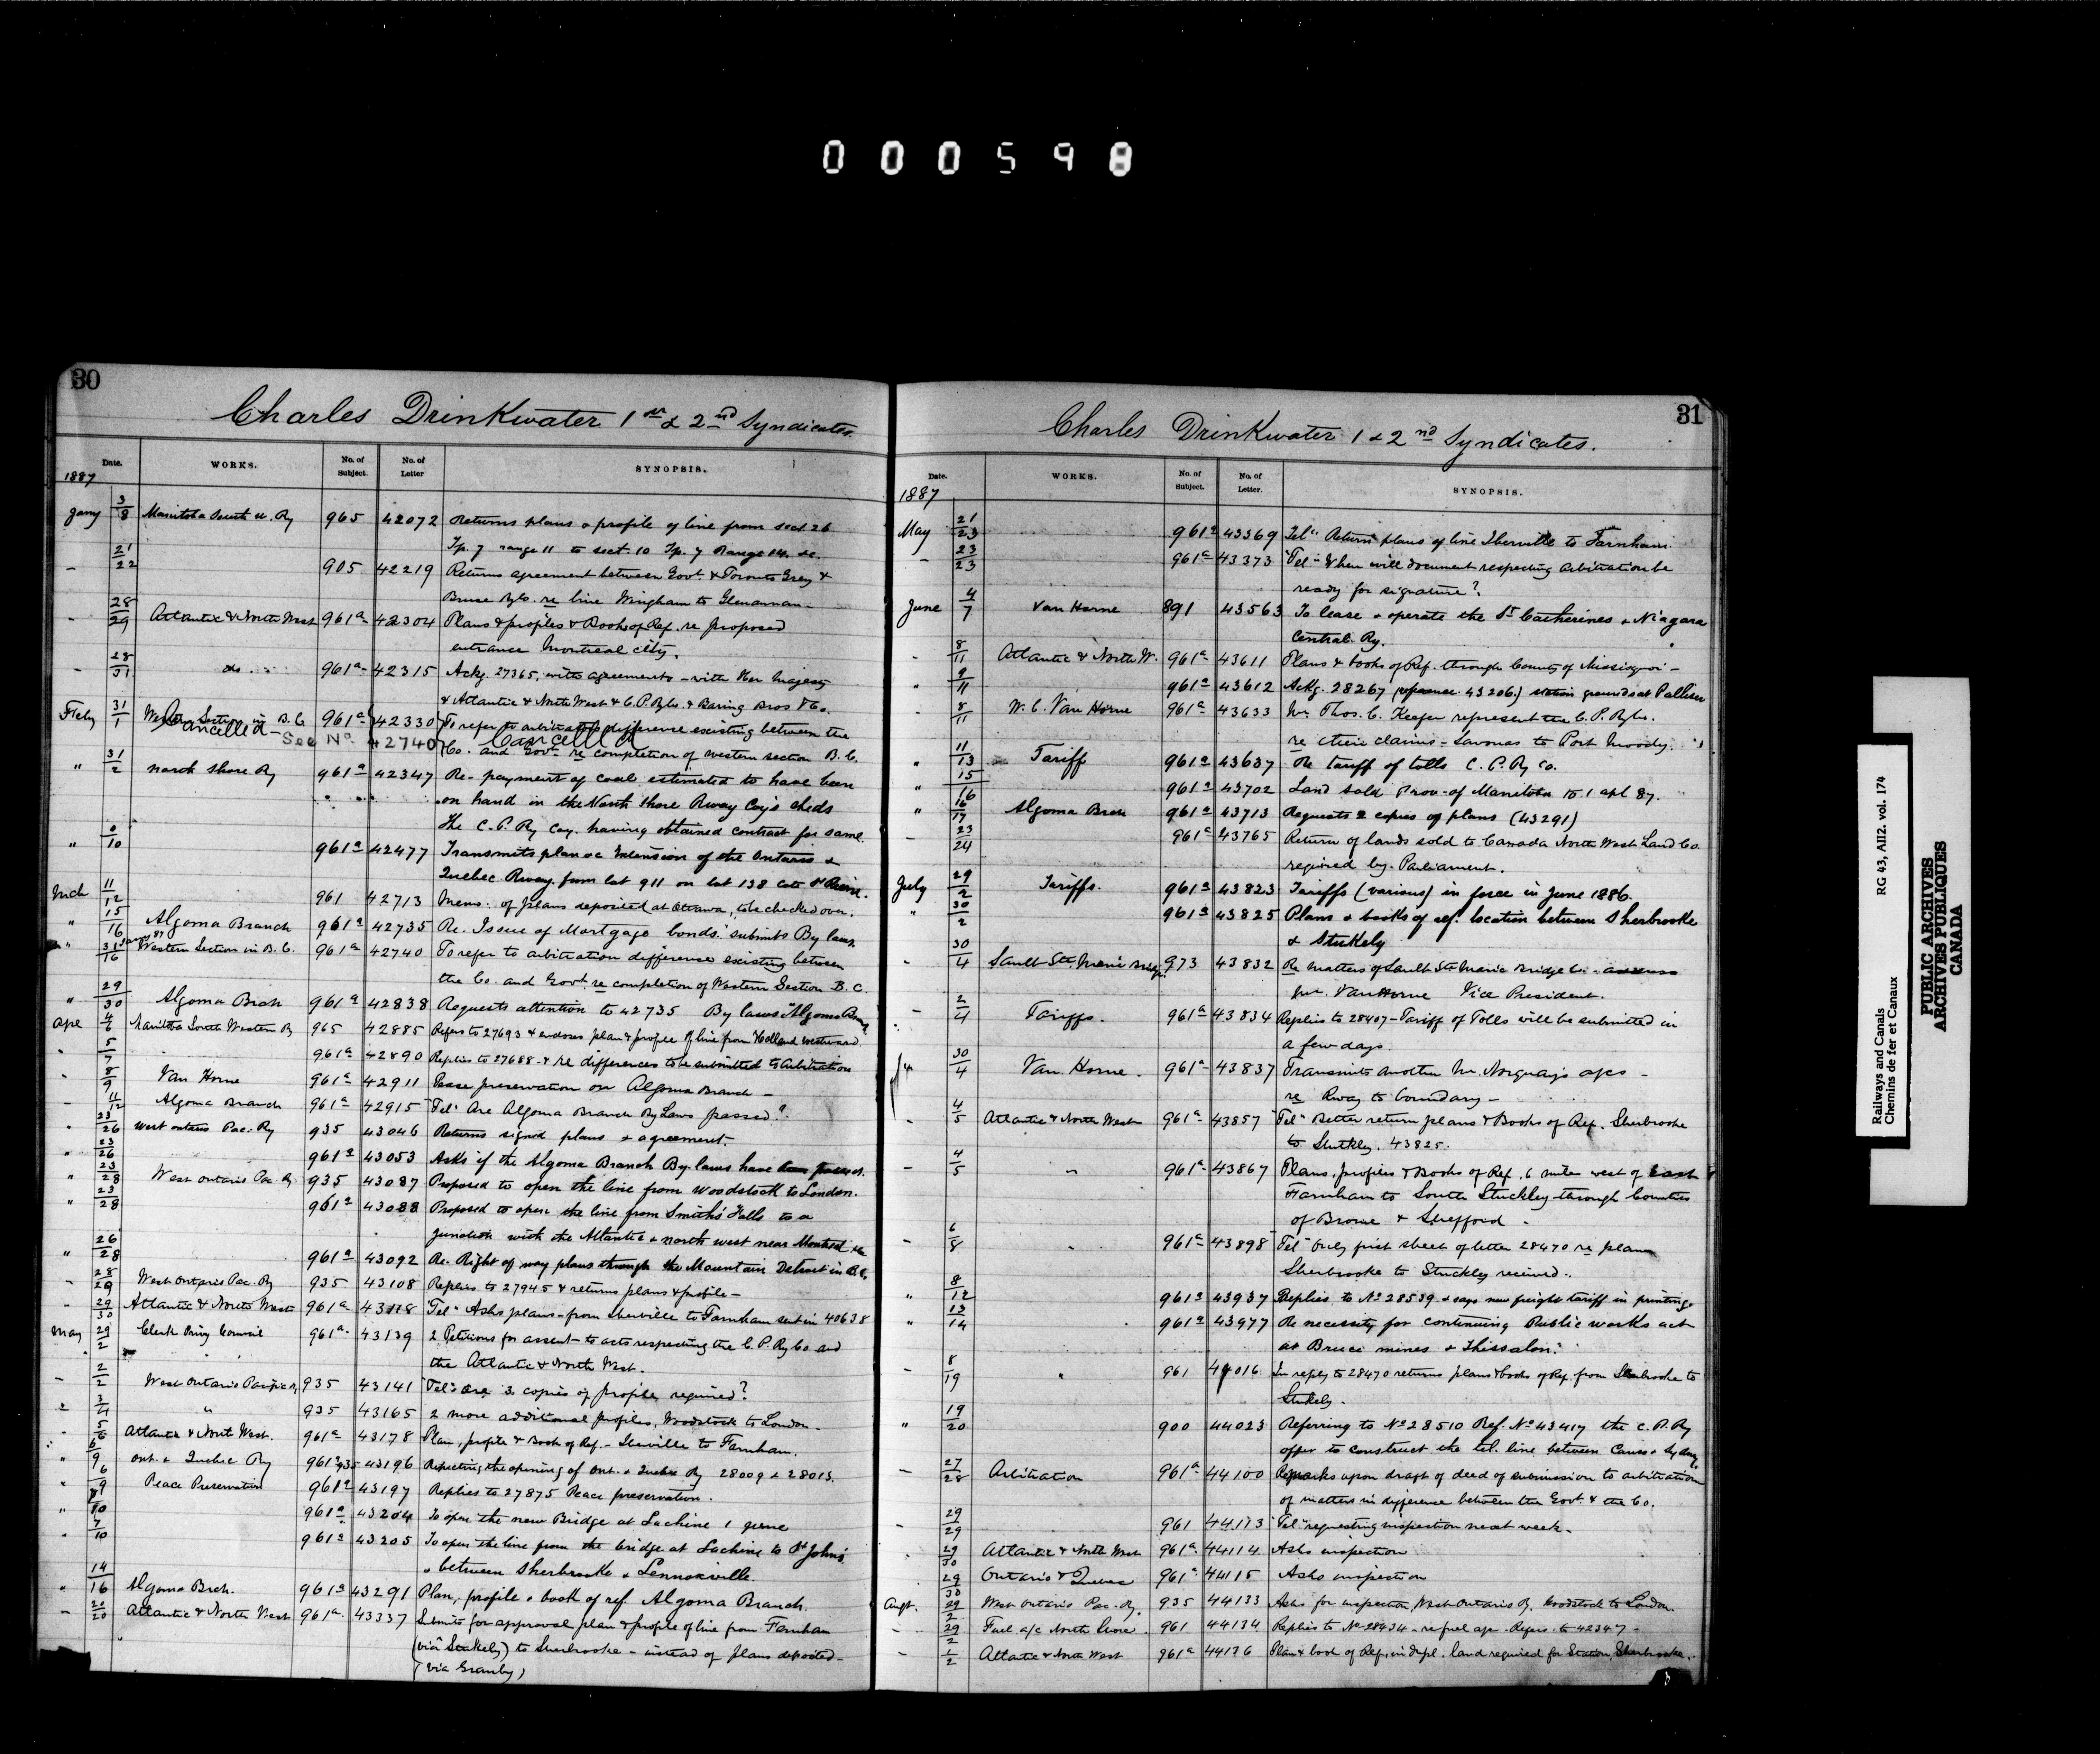 000598
30
Charles Drinkwater 1st & 2nd Syndicates.
Date.
WORKS.
No. of Subject.
No. of Letter
SYNOPSIS.
1887
Jany 3/8 Manitoba South W. Ry 965 42072 Returns plans & profile of line from sect. 26
Tp. 7 range 11 to sect. 10 Tp. 7 Range 14 &c.
- 21/22 905 42219 Returns agreement between Govt. & Toronto Grey &
Bruce Ry Co. re line Wingham to Glenannan -
- 28/29 Atlantic & North West 961a 42304 Plans & profiles & Books of Ref. re proposed
entrance Montreal city.
- 28/31 do. 961a 42315 Ackg. 27365, with agreements - with Her Majesty
& Atlantic & North West & C.P. Ry Co. & Baring Bros & Co.
Feby 31/1 Western Section in B.C. 961a 42330 To refer to arbitration difference existing between the
Cancelled - See No. 42740 Cancelled Co. and Govt. re completion of western section B.C.
" 31/2 North Shore Ry 961a 42347 Re- payment of coal estimated to have been
on hand in the North Shore Rway Coy's sheds
The C.P. Ry Coy. having obtained contract for same.
" 10 961a 42477 Transmits plan &c Extension of the Ontario &
Quebec Rway. from lot 911 on lot 138
Mch 11/12 961 42713 Memo: of plans deposited at Ottawa, to be checked over.
" 15/16 Algoma Branch 961a 42735 Re. Issue of Mortgage bonds. submits By laws.
" 31 Jany 87/16 Western Section in B.C. 961a 42740 To refer to arbitration difference existing between
the Co. and Govt. re completion of Western Section B.C.
" 29/30 Algoma Brch 961a 42838 Requests attention to 42735 By laws "Algoma Branch
Ape 4/6 Manitoba South Western Ry 965 42885 Refers to 27693 & endorses plan & profile of line from Holland westward
" 5/7 961a 42890 Replies to 27688 - & re differences to be submitted to Arbitration
" 8/9 Van Horne 961a 42911 Peace preservation on Algoma Branch -
- 11/12 Algoma Branch 961a 42915 "Tel" Are Algoma Branch By Laws passed?
" 23/26 West Ontario Pac. Ry 935 43046 Returns signed plans & agreement.
" 23/26 961a 43053 Asks if the Algoma Branch By-laws have been passed.
" 23/28 West Ontario Pac. Ry. 935 43087 Proposed to open the line from Woodstock to London.
" 23/28 961a 43088 Proposed to open the line from Smith's Falls to a
junction with the Atlantic & north west near Montreal
" 26/28 961a 43092 Re. Right of way plans through the Mountain District in B.C.
- 28/29 West Ontario Pac. Ry 935 43108 Replies to 27945 & returns plans & profile -
- 29/30 Atlantic & North West 961a 43118 "Tel" Asks plans - from Iberville to Farnham sent in 40638
May 29/2 Clerk Privy Council 961a 43139 2 Petitions for assent - to acts respecting the C.P. Ry Co and
the Atlantic & North West.
- 2/2 West Ontario Pacific Ry 935 43141 "Tel" Are 3 copies of profile required?
" 3/4 " 935 43165 2 more additional profiles, Woodstock to London -
" 5/6 Atlantic & North West. 961a 43178 Plan, profile & Book of Ref. - Iberville to Farnham.
" 6/9 Ont. & Quebec Ry 961a 935 43196 Respecting the opening of Ont. & Quebec Ry 28009 & 28013.
" 6/9 Peace Preservation 961a 43197 Replies to 27875 Peace preservation.
" 10 961a 43204 To open the new Bridge at Lachine 1 June
" 7/10 961a 43205 To open the line from the bridge at Lachine to St. Johns
& between Sherbrooke & Lennoxville.
" 14/16 Algoma Brch. 961a 43291 Plan, profile & book of ref. Algoma Branch.
- 20/20 Atlantic & North West 961a 43337 Submits for approval plan & profile of line from Farnham
(via Stukely) to Sherbrooke - instead of plans deposited -
(via Granby)
31
Charles Drinkwater 1 & 2nd Syndicates.
Date.
WORKS.
No. of Subject.
No. of Letter.
SYNOPSIS.
1887
May 21/23 961a 43369 "Tel" Return plans of line Iberville to Farnham.
- 23/23 961a 43373 "Tel" When will document respecting arbitration be
ready for signature?
June 4/7 Van Horne 891 43563 To lease & operate the St Catherines & Niagara
Central Ry.
- 8/11 Atlantic & North W. 961a 43611 Plans & books of Ref. through County of Missisquoi -
" 9/11 961a 43612 Ackg. 28267 (reference 43206.) station grounds at Palliser
- 8/11 W. C. Van Horne 961a 43633 Mr. Thos. C. Keefer represent the C.P. Ry Co.
re their claims - Savonas to Port Moody.
" 11/13 Tariff 961a 43637 Re tariff of tolls C.P. Ry Co.
" 15/16 961a 43702 Land sold Prov. of Manitoba to 1 Apl 87.
" 16/17 Algoma Brch 961a 43713 Requests 2 copies of plans (43291)
- 23/24 961a 43765 Return of lands sold to Canada North West Land Co.
required by Parliament.
July 29/2 Tariffs. 961a 43823 Tariffs (various) in force in June 1886.
" 30/2 961a 43825 Plans & books of ref. location between Sherbrooke
& Stukely
- 30/4 Sault Ste. Marie Bridge 973 43832 Re matters of Sault Ste Marie Bridge Co.
Mr. Van Horne Vice President.
- 2/4 Tariffs. 961a 43834 Replies to 28407 - Tariff of Tolls will be submitted in
a few days.
30/4 Van Horne. 961a 43837 Transmits another Mr. Norquay's -
re Rway to boundary -
- 4/5 Atlantic & North West 961a 43857 "Tel" Better return plans & Books of Ref. Sherbrooke
to Stukley. 43825.
- 4/5 " 961a 43867 Plans, profiles & Books of Ref. 6 mile west of East
Farnham to South Stuckley through Counties
of Brome & Shefford -
- 6/8 " 961a 43898 "Tel" Only first sheet of letter 28470 re plan
Sherbrooke to Stuckley received.
" 8/12 961a 43937 Replies to No 28539 & says new freight tariff in printing.
" 13/14 961a 43977 Re necessity for continuing Public works act
at Bruce mines & Thissalon.
- 8/19 " 961 44016 In reply to 28470 returns plans & books of Ref. from Sherbrooke to
Stukely -
" 19/20 900 44023 Referring to No 28510 Ref. No 43417 the C.P. Ry
offer to construct the tel. line between Canso & Sydney.
- 27/28 Arbitration 961a 44100 Remarks upon draft of deed of submission to arbitration
of matters in difference between the Govt. & the Co.
- 29/29 961 44113 "Tel" requesting inspection next week.
29/30 Atlantic & North West 961a 44114 Asks inspection
29/30 Ontario & Quebec 961a 44115 Asks inspection
Augt. 29/2 West Ontario Pac. Ry. 935 44133 Asks for inspection, West Ontario Ry. Woodstock to London.
- 29/2 Fuel a/c North Shore. 961 44134 Replies to No 28434 - re fuel a/c - Refers to 42347 -
- 1/2 Atlantic & North West 961a 44136 Plan & book of Ref. in dupl. land required for Station, Sherbrooke.
Railways and Canals
Chemins de fer et Canaux
RG 43, AII2. vol. 174
PUBLIC ARCHIVES
ARCHIVES PUBLIQUES
CANADA